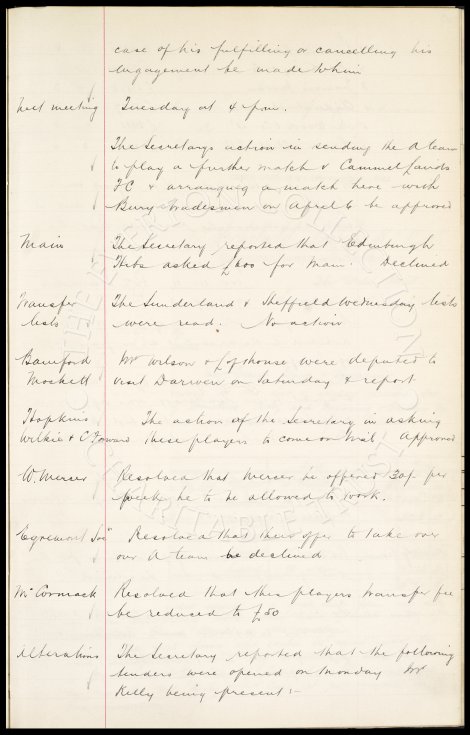 case of his fulfilling or cancelling his
engagement be made to him
Next meeting Tuesday at 4 p.m.
The Secretarys action in sending the A team
to play a further match v Cammel Lairds
FC & arranging a match here with
Bury Tradesmen on April 6 be approved
Main The Secretary reported that Edinburgh
Hibs asked £600 for Main. Declined
Transfer The Sunderland & Sheffield Wednesday lists
lists were read. No action
Bamford Mr Wilson & Lofthouse were deputed to
visit Darwen on Saturday & report
Hopkins The action of the Secretary in asking
Wilkie & C Forward these players to come on trial Approved
W. Mercer Resolved that Mercer be offered 30/- per
week he to be allowed to work.
Egremont Soc Resolved that their offer to take over
our A team be declined
McCormack Resolved that this players transfer fee
be reduced to £50
Alterations The Secretary reported that the following
tenders were opened on Monday Mr
Kelly being present :-
THE EVERTON COLLECTION
CHARITABLE TRUST